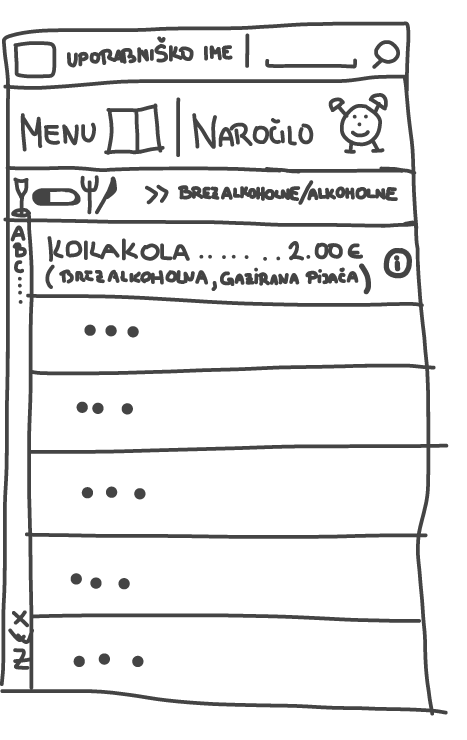 UPORABNIŠKO IME
MENU NAROČILO
>> BREZALKOHOLNE/ALKOHOLNE
A
B
C
KOKAKOLA ........ 2.00€
(BREZALKOHOLNA, GAZIRANA PIJAČA)
i
X
Y
Z